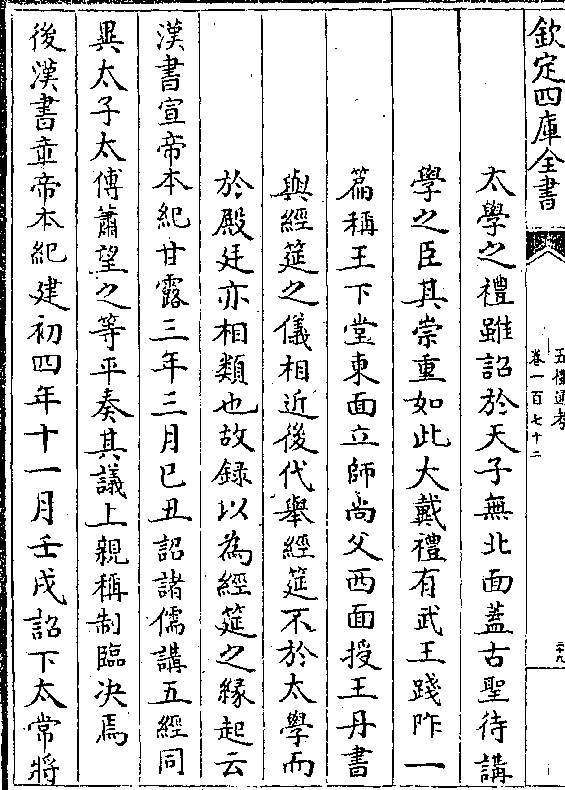 欽定四庫全書
五禮通考
卷一百七十二
二十九
太學之禮雖詔於天子無北面蓋古聖待講
學之臣其崇重如此大戴禮有武王踐阼一
篇稱王下堂東面立師尚父西面授王丹書
與經筵之儀相近後代舉經筵不於太學而
於殿廷亦相類也故録以為經筵之緣起云
漢書宣帝本紀甘露三年三月己丑詔諸儒講五經同
異太子太傅蕭望之等平奏其議上親稱制臨决焉
後漢書章帝本紀建初四年十一月壬戌詔下太常將